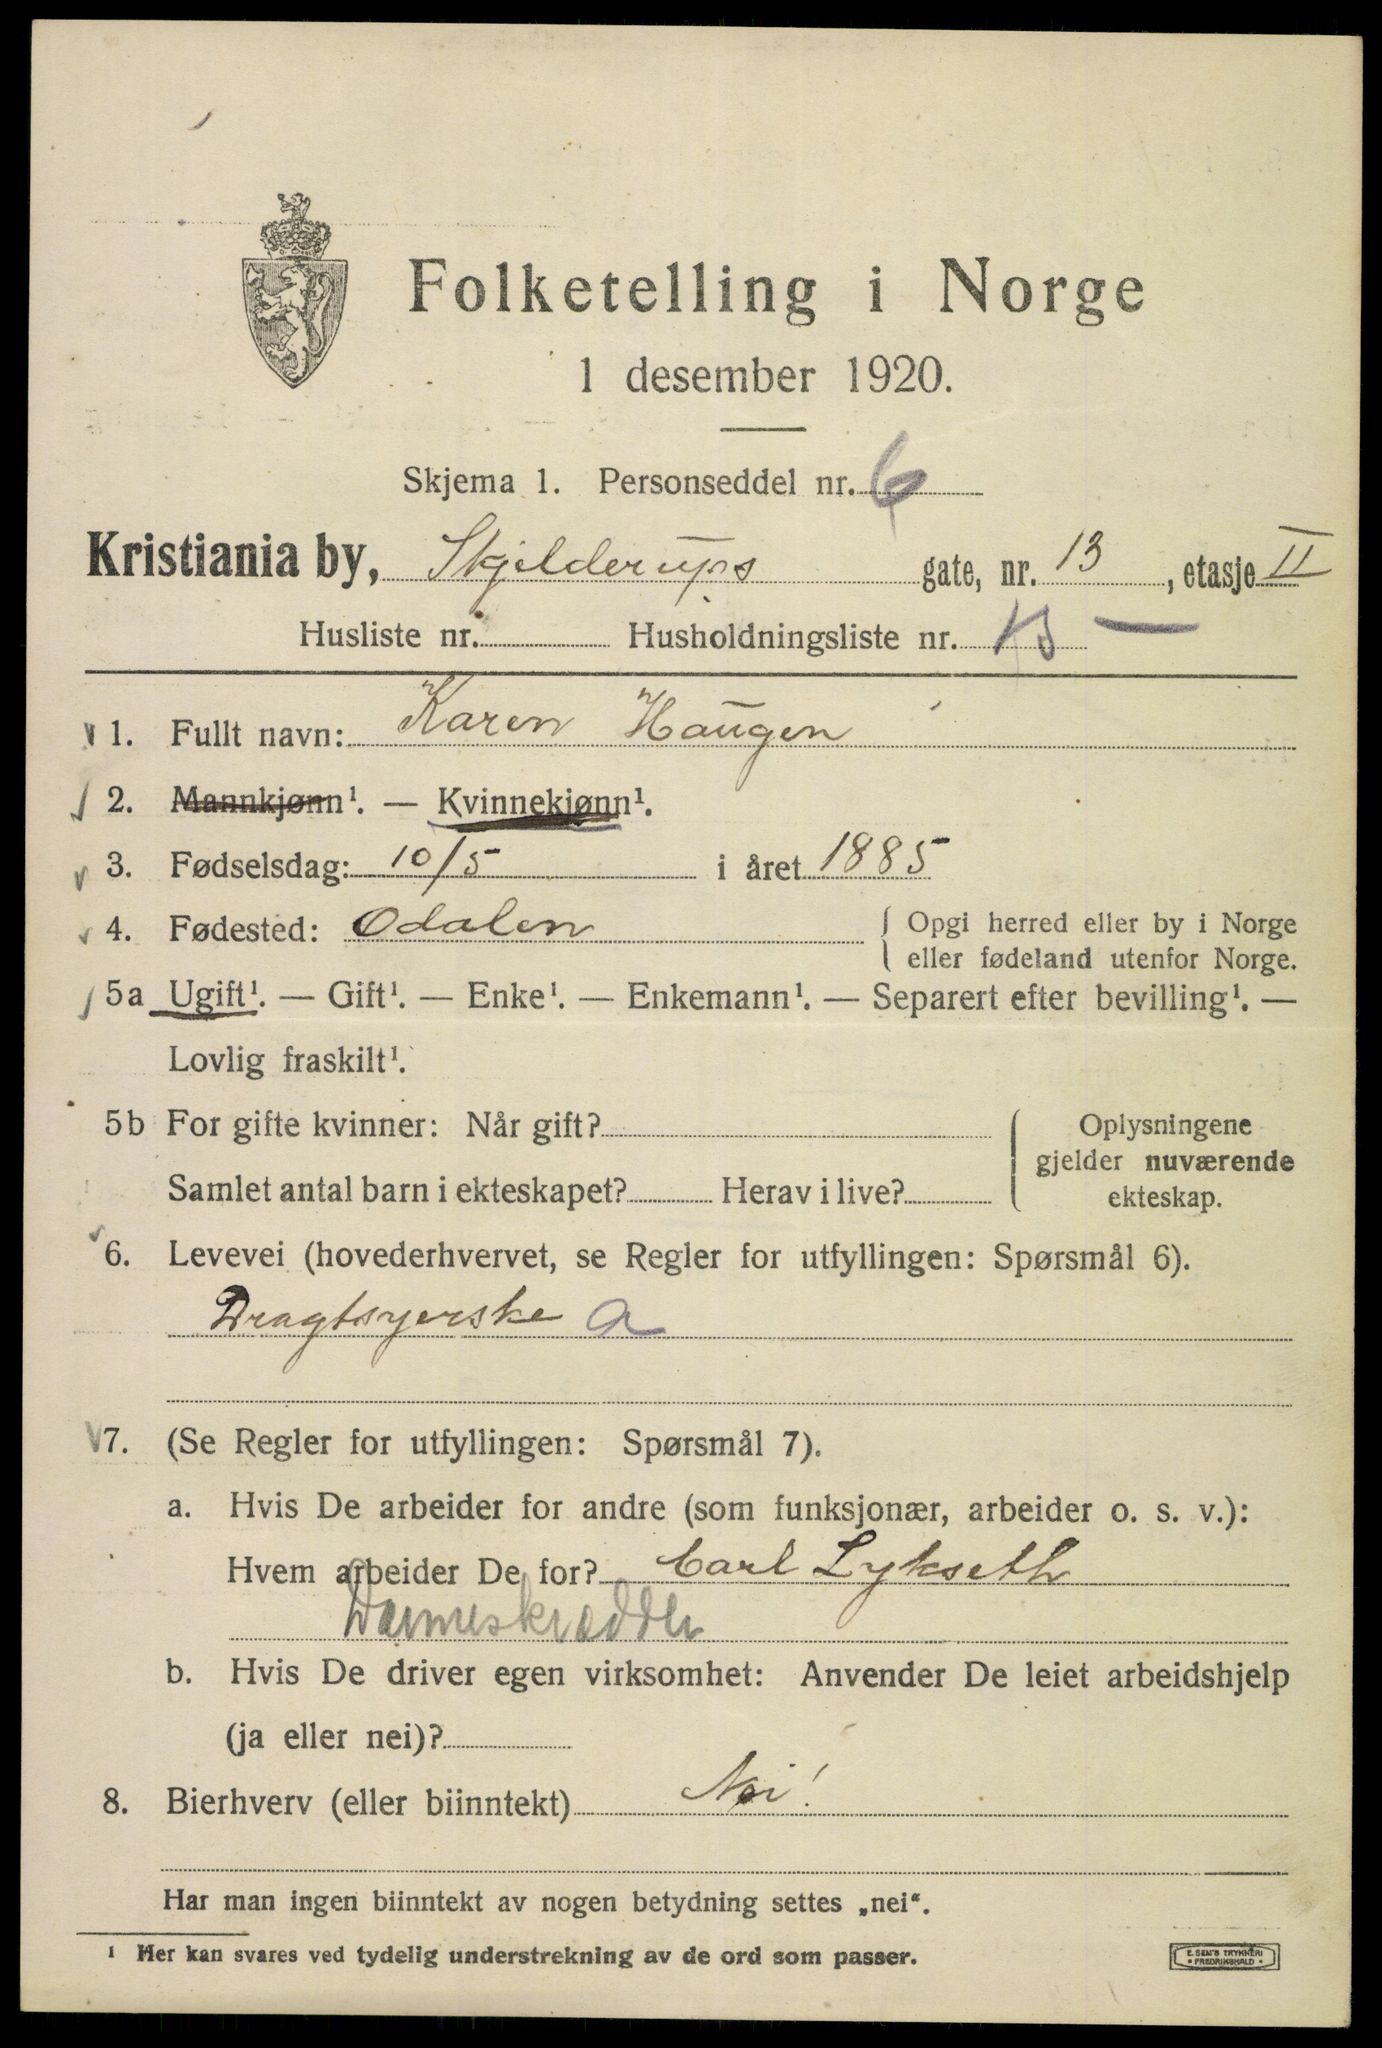 Folketelling i Norge
1 desember 1920.
Skjema 1. Personseddel nr. 6
Kristiania by, Skjelderups gate, nr. 13, etasje II
Husliste nr. Husholdningsliste nr. —
1. Fullt navn: Karen Haugen
2. Mannkjønn¹. — Kvinnekjønn¹.
3. Fødselsdag: 10/5 i året 1885
4. Fødested: Odalen { Opgi herred eller by i Norge
eller fødeland utenfor Norge.
5a Ugift¹. — Gift¹. — Enke¹. — Enkemann¹. — Separert efter bevilling¹. —
Lovlig fraskilt¹.
5b For gifte kvinner: Når gift? Oplysningene
gjelder nuværende
Samlet antal barn i ekteskapet? Herav i live? ekteskap.
6. Levevei (hovederhvervet, se Regler for utfyllingen: Spørsmål 6).
Dragtsyerske a
7. (Se Regler for utfyllingen: Spørsmål 7).
a. Hvis De arbeider for andre (som funksjonær, arbeider o. s. v.):
Hvem arbeider De for? Carl Lykseth
Dameskrædder
b. Hvis De driver egen virksomhet: Anvender De leiet arbeidshjelp
(ja eller nei)?
8. Bierhverv (eller biinntekt) Nei!
Har man ingen biinntekt av nogen betydning settes „nei“.
¹ Her kan svares ved tydelig understrekning av de ord som passer.
E. SEM'S TRYKKERI
• FREDRIKSHALD •